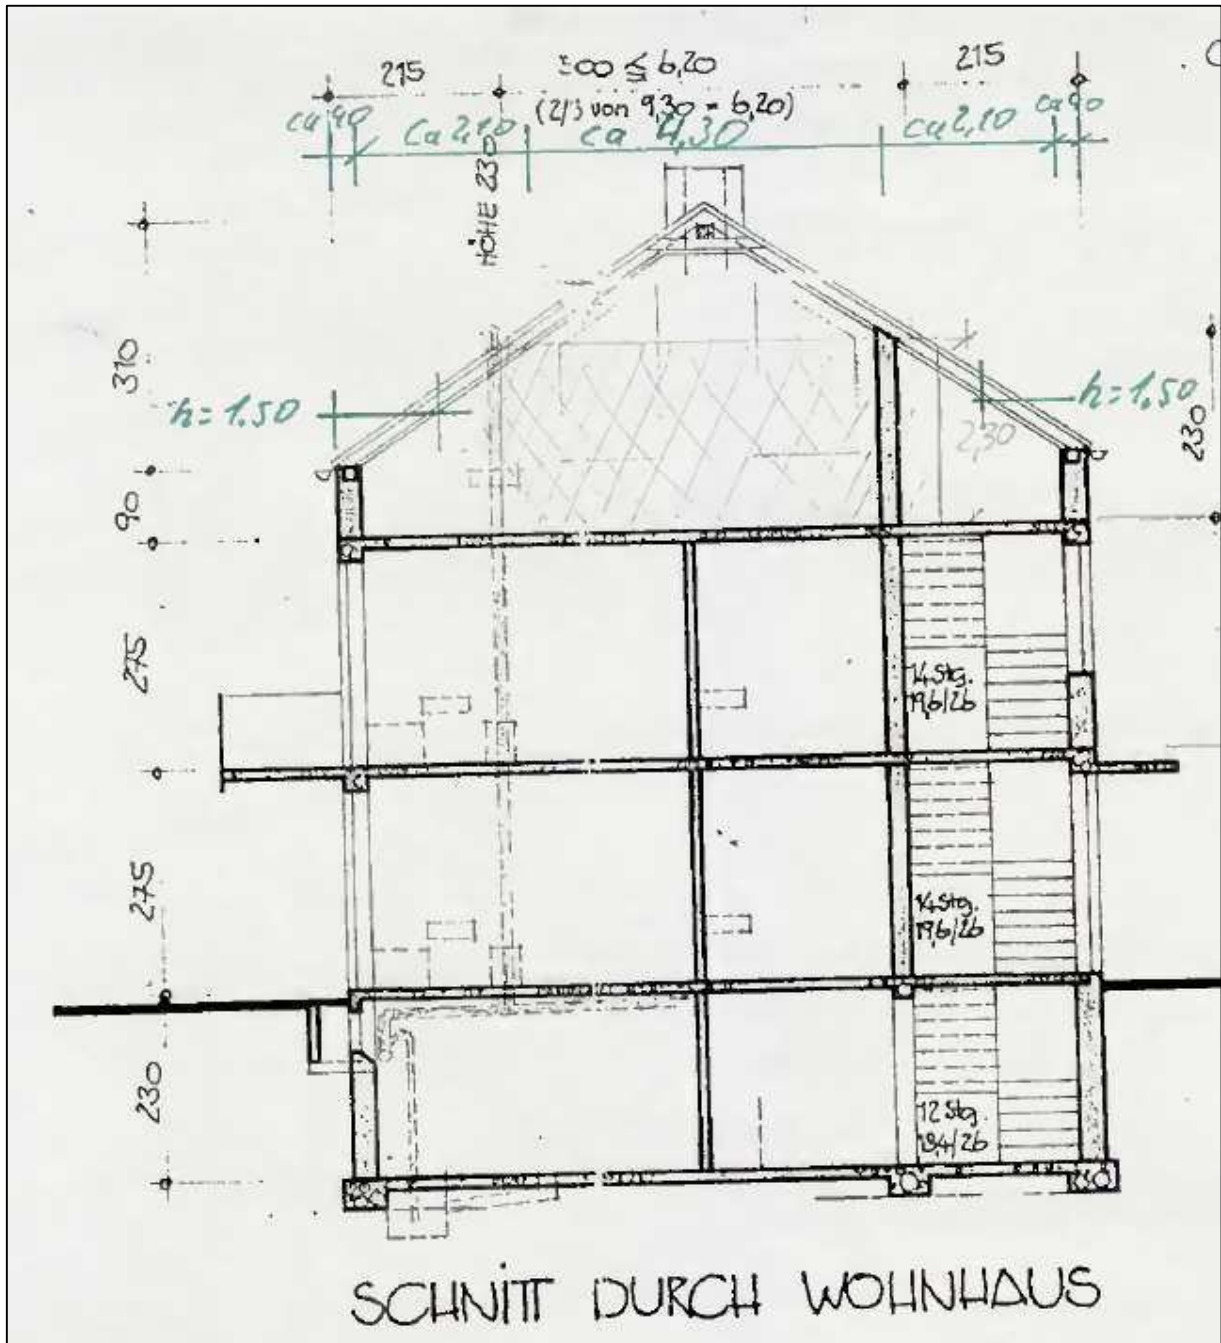 215
≤ 6,20
215
(2/3 von 9,30 = 6,20)
ca 40
ca 2,10
ca 4,30
ca 2,10
ca 40
HÖHE 230
310
h= 1.50
h= 1.50
230
2,30
90
275
14 Stg.
19,6/26
275
14 Stg.
19,6/26
230
12 Stg.
19,4/26
SCHNITT DURCH WOHNHAUS